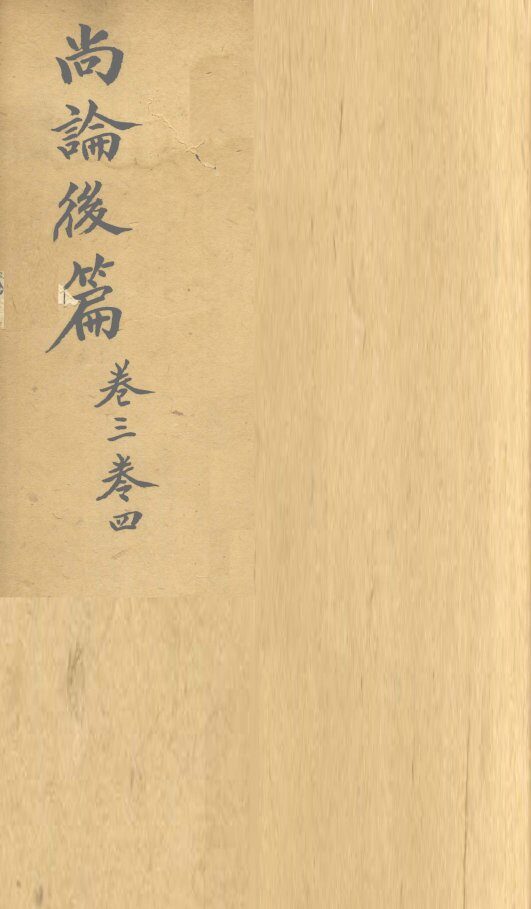 尚論後篇
卷三卷四